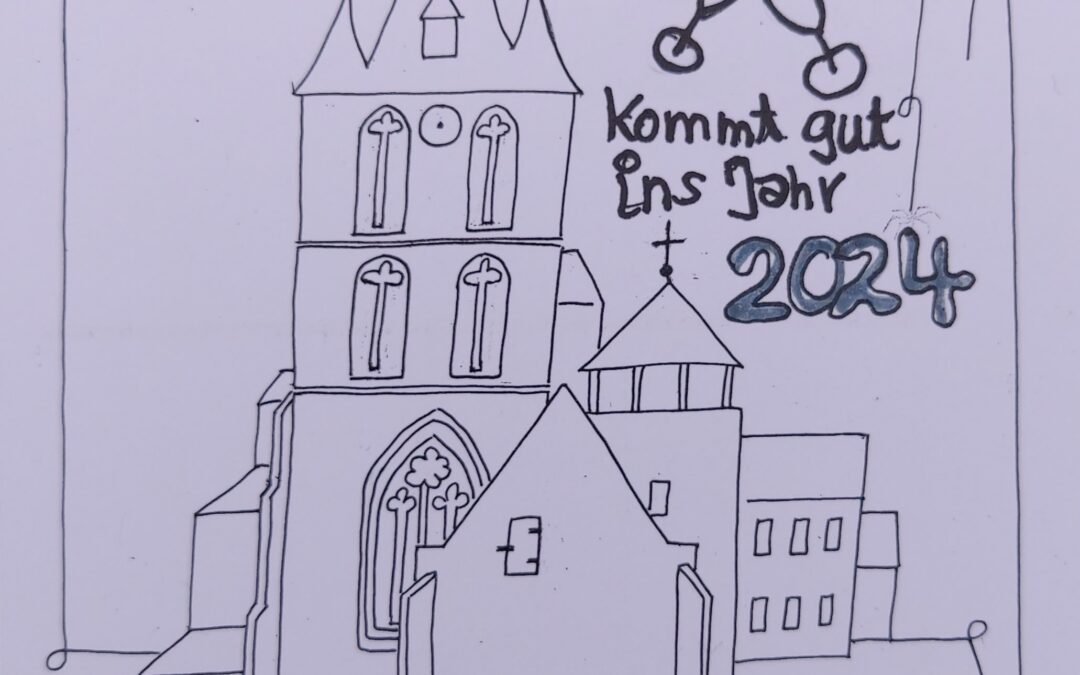 kommt gut
ins Jahr
2024